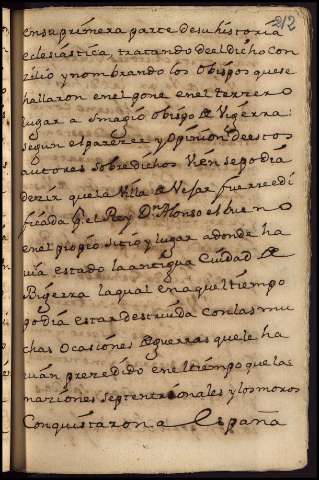 212
en su primera parte de su historia
eclesiastica, tratando de el dicho con
zilio y nombrando los Obispos que se
hallaron en el pone en el terzero
lugar a Smagio obispo de Vigerra:
segun el parezer y Opinion de estos
autores sobredichos vien se podia
dezir que la Villa de Vejar fue rreedi
ficada por el Rey Dn Alonso el bueno
en el propio sitio y lugar adonde ha
via estado la antigua Ciudad de
Bigerra la qual en aquel tiempo
podia estar destruida con las mu
chas Ocasiones de guerras que le ha
uian prezedido en el tiempo que las
naziones septentrionales y los moros
Conquistaron a España